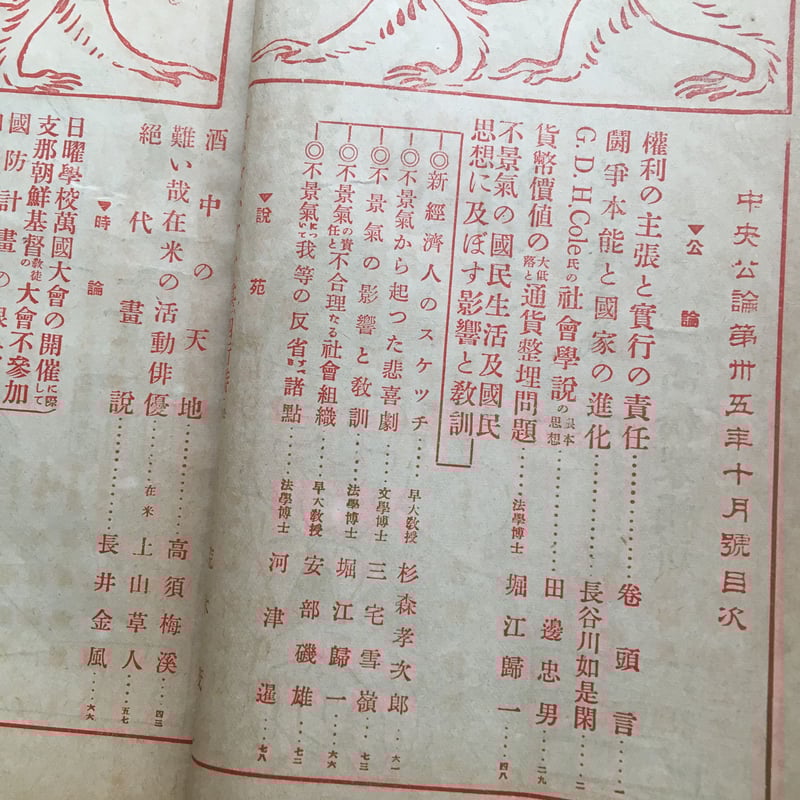 中央公論第卅五年十月號目次
▼公論
權利の主張と實行の責任…………卷頭言…一
鬪爭本能と國家の進化…………長谷川如是閑…二
G.D.H.Cole氏の社會學說の根本思想……田邊忠男…二九
貨幣價値の大低落と通貨整理問題……法學博士 堀江歸一…四八
不景氣の國民生活及國民
思想に及ぼす影響と敎訓
◎新經濟人のスケッチ……早大敎授 杉森孝次郎…六一
◎不景氣から起つた悲喜劇……文學博士 三宅雪嶺…七三
◎不景氣の影響と敎訓……法學博士 堀江歸一…六六
◎不景氣の責任と不合理なる社會組織……早大敎授 安部磯雄…七二
◎不景氣について我等の反省すべき諸點……法學博士 河津暹…七八
▼說苑
酒中の天地…………高須梅溪…四三
難い哉在米の活動俳優……在米 上山草人…五七
絕代畫說…………長井金風…六六
▼時論
日曜學校萬國大會の開催に際して
支那朝鮮基督敎徒の大會不參加
國防計畫の